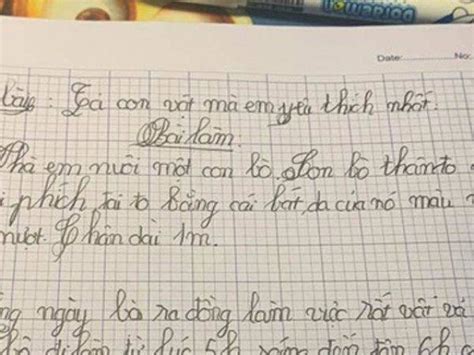 Doraemon
Date: No:
bài: Tả con vật mà em yêu thích nhất.
Bài làm.
Nhà em nuôi một con bò. Con bò thân to
phích, tai to bằng cái bát, da của nó màu
mượt. Chân dài 1m.
ng ngày bò ra đồng làm việc rất vất vả
từ lúc 5h sáng đến tận 6h